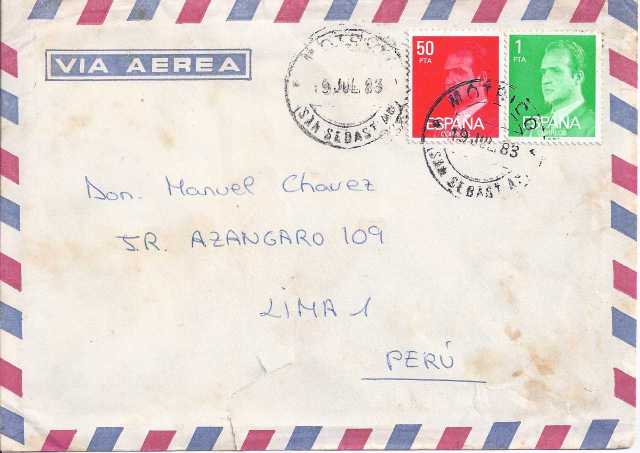 VIA AEREA
MOTRICO
19 JUL. 83
(SAN SEBAST
50
PTA
ESPAÑA
CORREOS
1
PTA
ESPAÑA
CORREOS
MOTRICO
19 JUL. 83
(SAN SEBAST
Don. Manuel Chavez
J.R. AZANGARO 109
LIMA 1
PERÚ